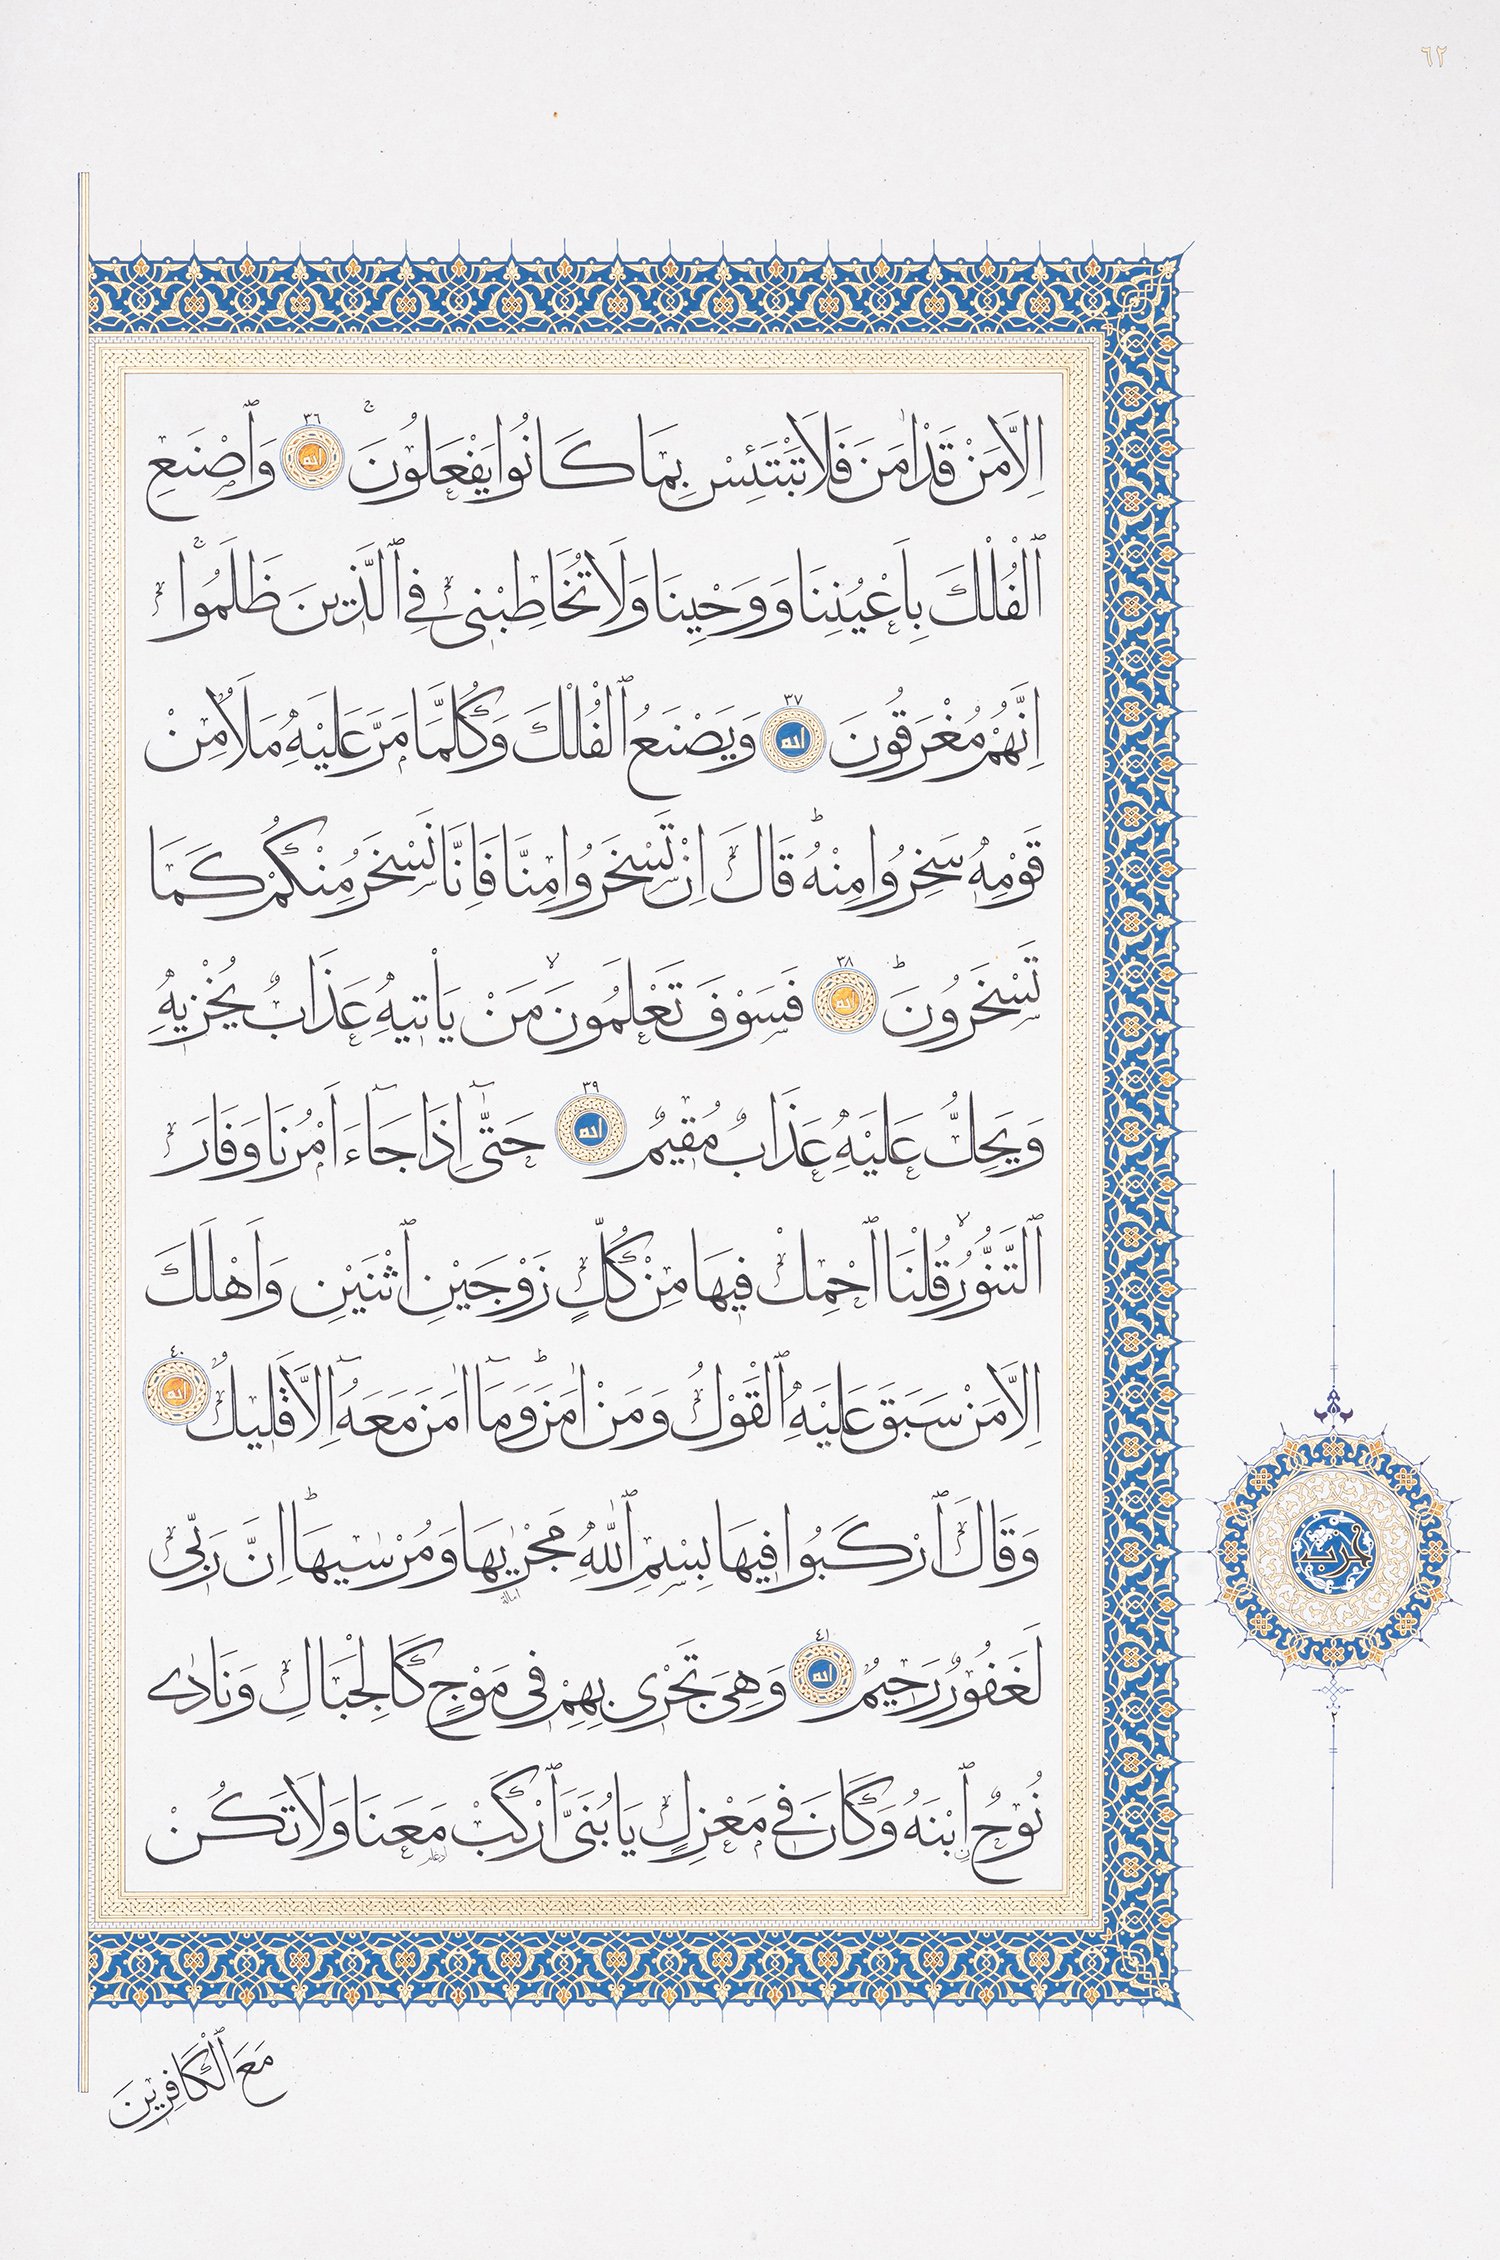 ٦٢
اِلَّا مَنْ قَدْ اٰمَنَ فَلَا تَبْتَئِسْ بِمَا كَانُوا يَفْعَلُونَۚ ٣٦ وَٱصْنَعِ
ٱلْفُلْكَ بِاَعْيُنِنَا وَوَحْيِنَا وَلَا تُخَاطِبْنِي فِي ٱلَّذِينَ ظَلَمُواۚ
اِنَّهُمْ مُغْرَقُونَ ٣٧ وَيَصْنَعُ ٱلْفُلْكَ وَكُلَّمَا مَرَّ عَلَيْهِ مَلَاٌ مِنْ
قَوْمِهٖ سَخِرُوا مِنْهُؕ قَالَ اِنْ تَسْخَرُوا مِنَّا فَاِنَّا نَسْخَرُ مِنْكُمْ كَمَا
تَسْخَرُونَؕ ٣٨ فَسَوْفَ تَعْلَمُونَۙ مَنْ يَاْتٖيهِ عَذَابٌ يُخْزٖيهِ
وَيَحِلُّ عَلَيْهِ عَذَابٌ مُقٖيمٌ ٣٩ حَتّٰٓى اِذَا جَٓاءَ اَمْرُنَا وَفَارَ
ٱلتَّنُّورُۙ قُلْنَا ٱحْمِلْ فٖيهَا مِنْ كُلٍّ زَوْجَيْنِ ٱثْنَيْنِ وَاَهْلَكَ
اِلَّا مَنْ سَبَقَ عَلَيْهِ ٱلْقَوْلُ وَمَنْ اٰمَنَؕ وَمَٓا اٰمَنَ مَعَهُٓ اِلَّا قَلٖيلٌ ٤٠
وَقَالَ ٱرْكَبُوا فٖيهَا بِسْمِ ٱللّٰهِ مَجْرٰۭيهَا وَمُرْسٰيهَاؕ اِنَّ رَبّٖي
امالة
لَغَفُورٌ رَحٖيمٌ ٤١ وَهِيَ تَجْرٖي بِهِمْ فٖي مَوْجٍ كَالْجِبَالِ وَنَادٰى
نُوحٌ ٱبْنَهُ وَكَانَ فٖي مَعْزِلٍ يَا بُنَيَّ ٱرْكَبْ مَعَنَا وَلَا تَكُنْ
مَعَ ٱلْكَافِرٖينَ
حزب